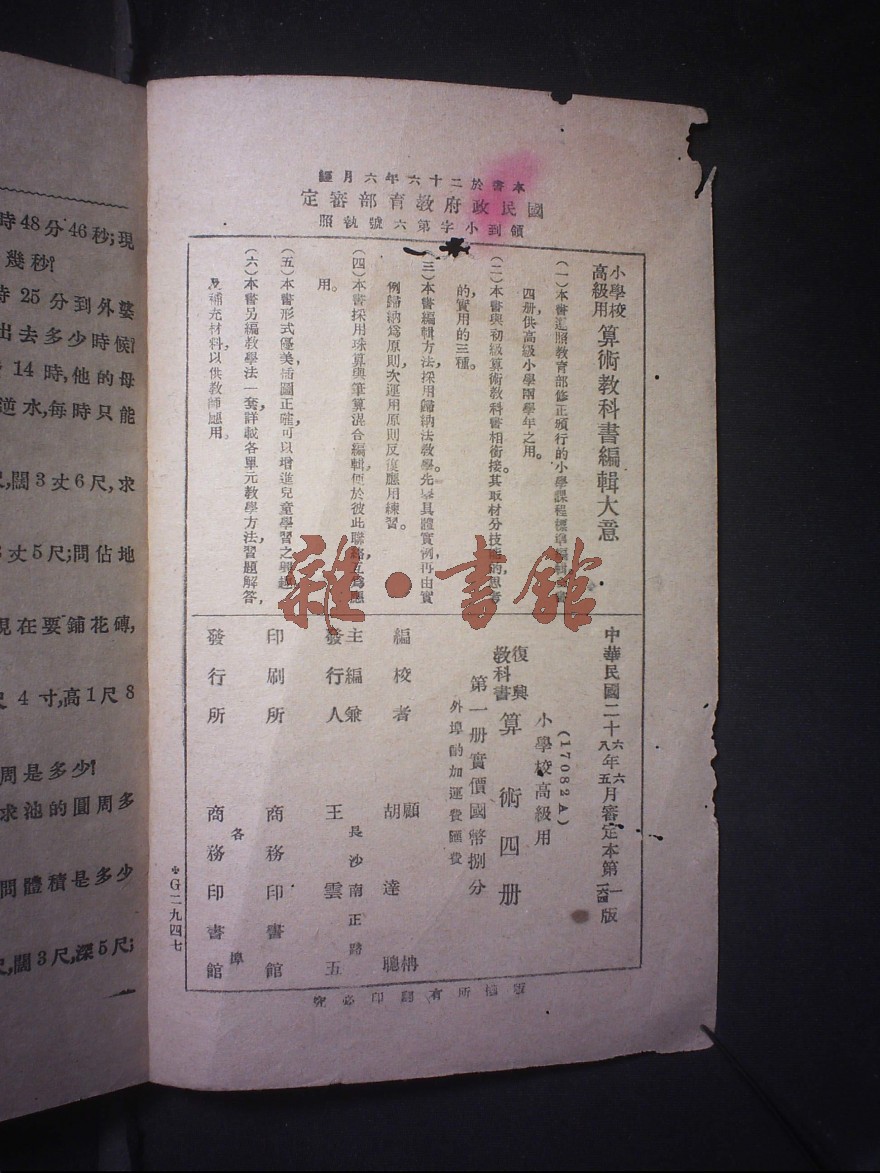 時48分46秒;現
幾秒?
時 25 分到外婆
出去多少時候?
14 時,他的母
逆水,每時只能
尺,闊3丈6尺,求
丈5尺;問佔地
現在要鋪花磚,
尺 4 寸,高1尺8
周是多少?
求池的圓周多
問體積是多少
尺,闊3尺,深5尺;
本書於二十六年六月經
國民政府教育部審定
領到小字第六號執照
小學校高級用 算術教科書編輯大意
(一)本書遵照教育部修正頒行的小學課程標準編輯,全書
四册,供高級小學兩學年之用。
(二)本書與初級算術教科書相銜接。其取材分技能的,思考
的,實用的三種。
(三)本書編輯方法,採用歸納法教學。先舉具體實例,再由實
例歸納爲原則,次運用原則反復應用練習。
(四)本書採用珠算與筆算混合編輯,便於彼此聯絡,互爲應
用。
(五)本書形式優美,插圖正確,可以增進兒童學習之興趣。
(六)本書另編教學法一套,詳載各單元教學方法,習題解答,
及補充材料,以供教師應用。
中華民國二十六年六月審定本第一版
八 五
(17082A)
小學校高級用
復興教科書 算術四册
第一册實價國幣捌分
外埠酌加運費匯費
編校者 顧枬
胡達聰
主編兼發行人 王雲五
長沙南正路
印刷所 商務印書館
各埠
發行所 商務印書館
版權所有翻印必究
*G二九四七
雜·書館